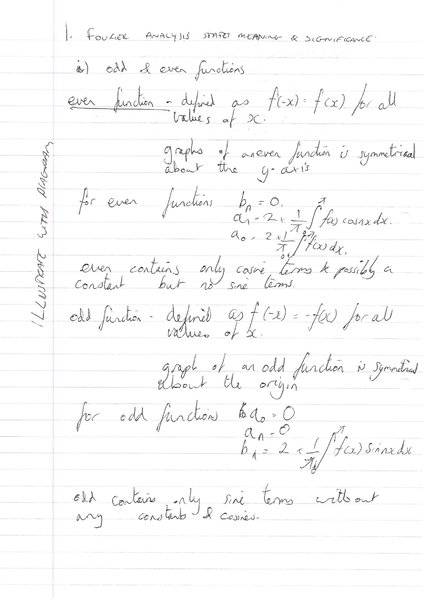 1. FOURIER ANALYSIS STATES MEANING & SIGNIFICANCE.
i) odd & even functions
even function - defined as f(-x) = f(x) for all
values of x.
graphs of an even function is symmetrical
about the y-axis
for even functions bn = 0.
an = 2 × 1/π ∫ f(x) cosnx dx.
a0 = 2 × 1/π ∫ f(x) dx.
even contains only cosine terms & possibly a
constant but no sine terms.
odd function - defined as f(-x) = -f(x) for all
values of x.
graph of an odd function is symmetrical
about the origin
for odd functions a0 = 0
an = 0
bn = 2 × 1/π ∫ f(x) sinnx dx
odd contains only sine terms without
any constants & cosines.
ILLUSTRATE WITH DIAGRAMS